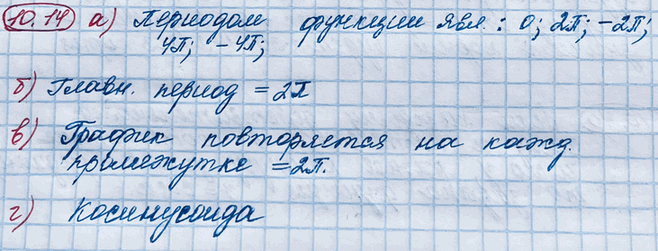 10.14 а) Периодом функции явл.: 0; 2π; -2π;
4π; -4π;
б) Главн. период = 2π
в) График повторяется на кажд.
промежутке = 2π.
г) Косинусоида